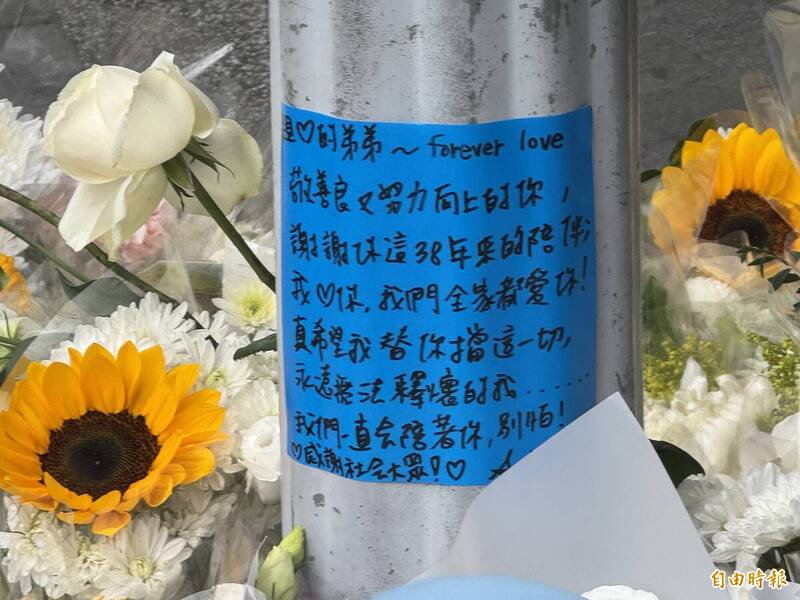 ♡的弟弟～forever love
敬善良又努力向上的你,
謝謝你這38年來的陪伴,
我♡你,我們全家都愛你!
真希望我替你擋這一切,
永遠無法釋懷的我......
我們一直會陪著你,別怕!
♡感謝社會大眾!♡
自由時報